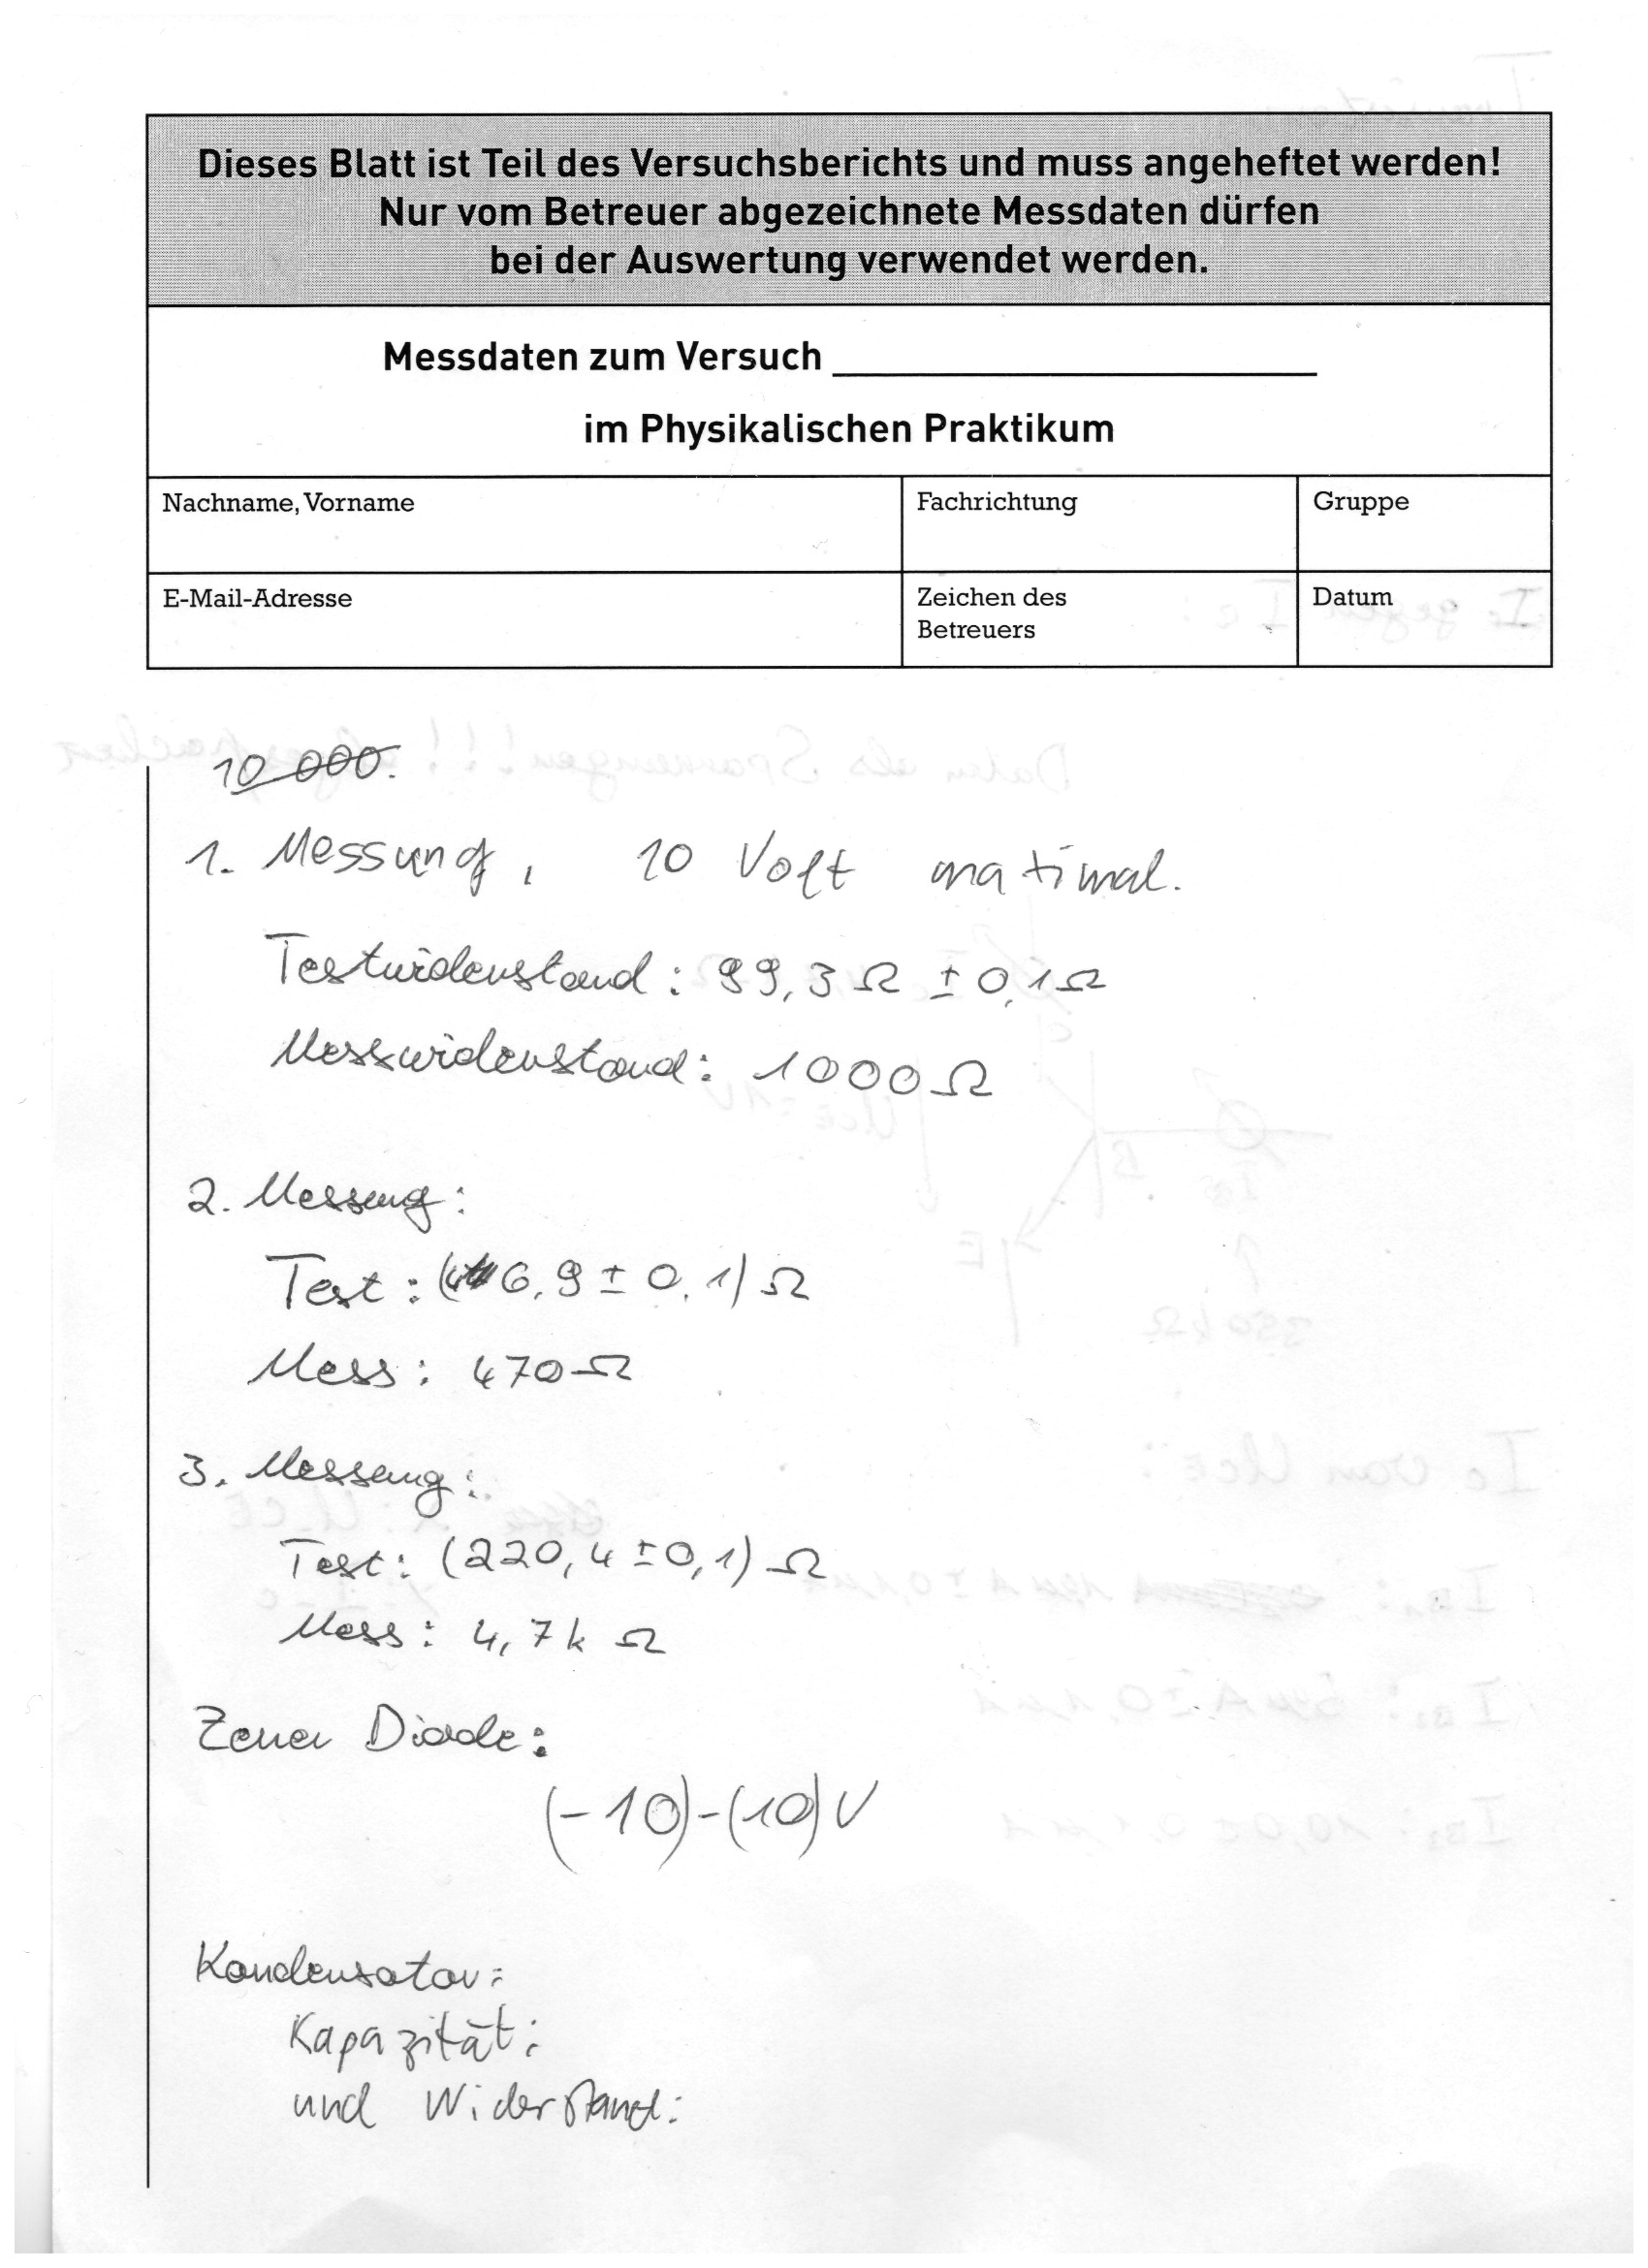 Dieses Blatt ist Teil des Versuchsberichts und muss angeheftet werden!
Nur vom Betreuer abgezeichnete Messdaten dürfen
bei der Auswertung verwendet werden.
Messdaten zum Versuch
im Physikalischen Praktikum
Nachname, Vorname
Fachrichtung
Gruppe
E-Mail-Adresse
Zeichen des
Betreuers
Datum
10 000.
1. Messung, 10 Volt maximal.
Testwiderstand: 99,3 Ω ± 0,1 Ω
Messwiderstand: 1000 Ω
2. Messung:
Test: 6,9 ± 0,1) Ω
Mess: 470 Ω
3. Messung:
Test: (220,4 ± 0,1) Ω
Mess: 4,7 k Ω
Zener Diode:
(-10)-(10) V
Kondensator:
Kapazität:
und Widerstand: